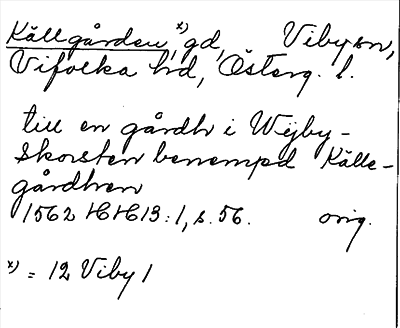 Källgården,ˣ⁾ gd, Viby sn,
Vifolka hd, Österg. l.
till en gårdh i Wijby-
skorsten benempd Källe-
gårdhen
1562 HH 13:1, s. 56. orig.
ˣ⁾ = 12 Viby 1